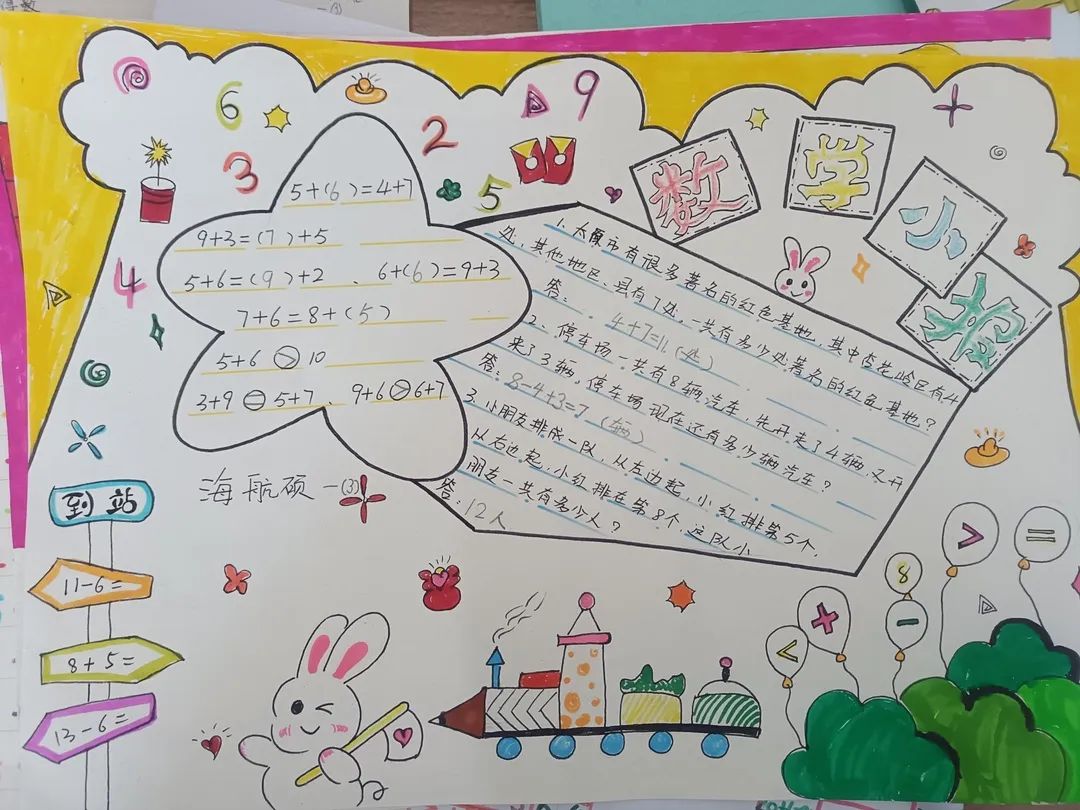 数学小报
6
9
2
3
5
4
5+(6)=4+7
9+3=(7)+5
5+6=(9)+2、6+(6)=9+3
7+6=8+(5)
5+6 > 10
3+9 = 5+7、9+6 > 6+7
1、太原市有很多著名的红色基地,其中杏花岭区有4
处,其他地区、县有7处,一共有多少处著名的红色基地?
答: 4+7=11(处)
2、停车场一共有8辆汽车,先开走了4辆,又开
来了3辆,停车场现在还有多少辆汽车?
答:8-4+3=7(辆)
3、小朋友排成一队,从左边起,小红排第5个,
从右边起,小红排在第8个,这队小
朋友一共有多少人?
答:12人
海航硕 一(3)
到站
11-6=
8+5=
13-6=
> =
8
+ −
<